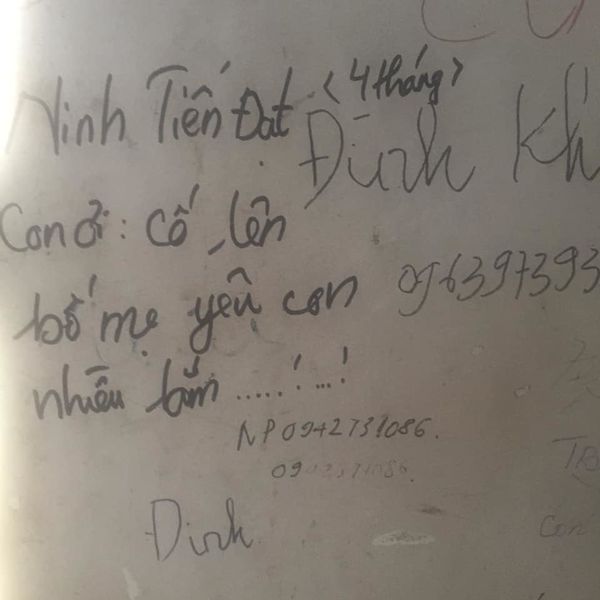 Ninh Tiến Đạt <4 tháng>
Đình Kh
Con ơi: cố lên
bố mẹ yêu con
096397393
nhiều lắm .....! ...!
NP 0942731086.
Dinh
TB
Con